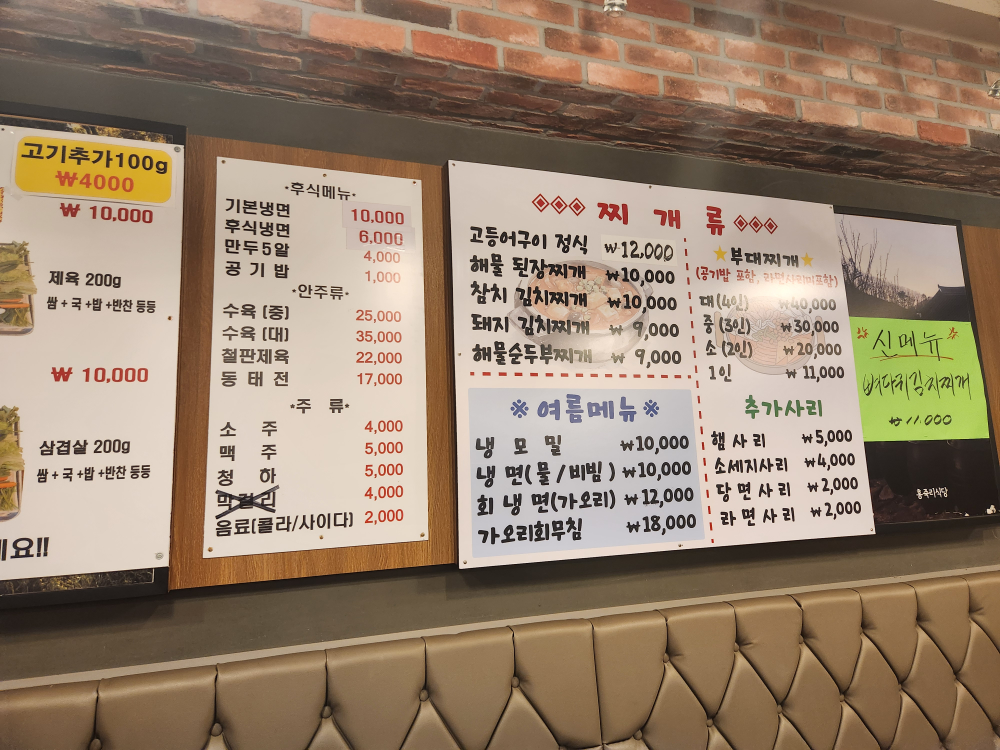 고기추가100g
₩4000
₩ 10,000
제육 200g
쌈 + 국 +밥 +반찬 등등
₩ 10,000
삼겹살 200g
쌈 + 국 +밥 +반찬 등등
요!!
•후식메뉴•
기본냉면 10,000
후식냉면 6,000
만두5알 4,000
공기밥 1,000
•안주류•
수육 (중) 25,000
수육 (대) 35,000
철판제육 22,000
동태전 17,000
•주 류•
소 주 4,000
맥 주 5,000
청 하 5,000
막걸리 4,000
음료(콜라/사이다) 2,000
찌 개 류
고등어구이 정식 ₩12,000
해물 된장찌개 ₩10,000
참치 김치찌개 ₩10,000
돼지 김치찌개 ₩ 9,000
해물순두부찌개 ₩ 9,000
※ 여름메뉴 ※
냉 모 밀 ₩10,000
냉 면(물/비빔) ₩10,000
회 냉 면(가오리) ₩12,000
가오리회무침 ₩18,000
★부대찌개★
(공기밥 포함, 라면사리미포함)
대(4인) ₩40,000
중(3인) ₩30,000
소(2인) ₩20,000
1인 ₩ 11,000
추가사리
햄사리 ₩5,000
소세지사리 ₩4,000
당면사리 ₩2,000
라면사리 ₩2,000
신메뉴
뼈다귀김치찌개
₩11.000
홍죽리식당